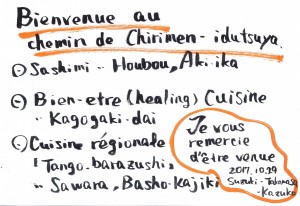 Bienvenue au
chemin de Chirimen-idutsuya.
Sashimi - Houbou, Aki-ika
Bien-etre (healing) Cuisine
- Kagogaki-dai
Cuisine régionale
"Tango-barazushi"
Sawara, Basho-kajiki
Je vous
remercie
d'être venue
2017.10.29
Suzuki-
-Kazuko